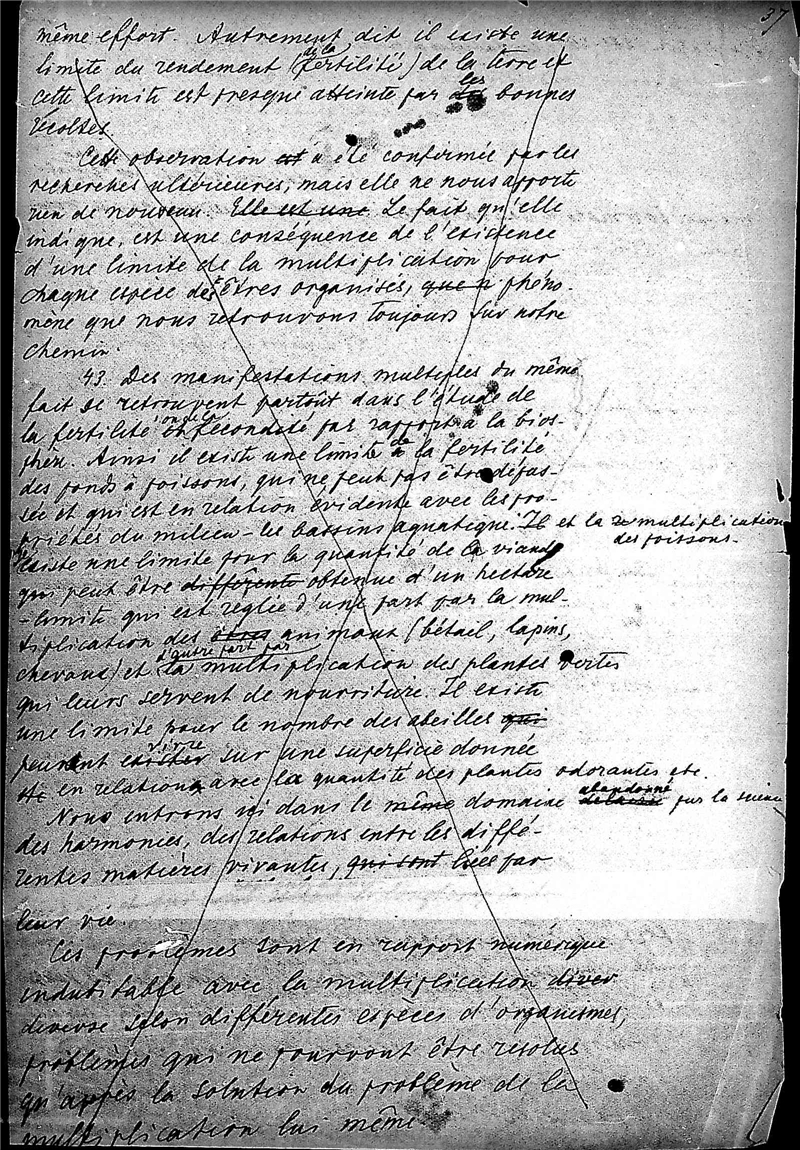 37
même effort. Autrement dit il existe une
limite du rendement (de la fertilité) de la terre et
cette limite est presque atteinte par des les bonnes
récoltes
Cette observation est a été confirmée par les
recherches ultérieures, mais elle ne nous apporte
rien de nouveau. Elle est une Le fait qu'elle
indique, est une conséquence de l'existence
d'une limite de la multiplication pour
chaque espèce des êtres organisés, que n phéno-
mène que nous retrouvons toujours sur notre
chemin.
43. Des manifestations multiples du même
fait se retrouvent partout dans l'étude de
la fertilité ou de la fécondité par rapport à la bios-
phère. Ainsi il existe une limite de à la fertilité
des fonds à poissons, qui ne peut pas être dépas-
sée et qui est en relation évidente avec les pro-
priétés du milieu - les bassins aquatique. Il et la multiplication
des poissons.
existe une limite pour la quantité de la viande
qui peut être différente obtenue d'un hectare
- limite qui est réglée d'une part par la mul-
tiplication des êtres animaux (bétail, lapins,
chevaux) et d'autre part par la multiplication des plantes vertes
qui leurs servent de nourriture. Il existe
une limite pour le nombre des abeilles qui
peuvent exister vivre sur une superficie donnée
etc en relation avec la quantité des plantes odorantes etc.
Nous entrons ici dans le même domaine abandonné par la science
des harmonies, des relations entre les diffé-
rentes matières vivantes, qui sont liées par
leur vie.
Ces problèmes sont en rapport numérique
indubitable avec la multiplication diver
diverse selon différentes espèces d'organismes,
problèmes qui ne pourront être resolus
qu'après la solution du problème de la
multiplication lui même